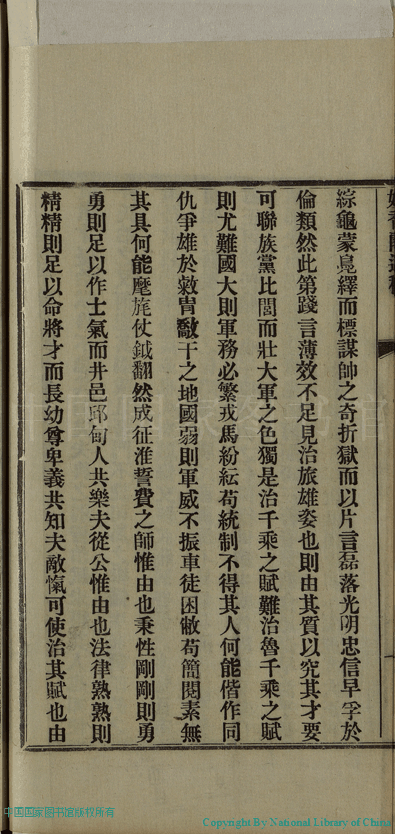 綜龜蒙鳧繹而標謀帥之奇折獄而以片言磊落光明忠信早孚於
倫類然此第踐言薄效不足見治旅雄姿也則由其質以究其才要
可聯族黨比閭而壯大軍之色獨是治千乘之賦難治魯千乘之賦
則尤難國大則軍務必繁戎馬紛紜苟統制不得其人何能偕作同
仇爭雄於敹冑敿干之地國弱則軍威不振車徒困敝苟簡閱素無
其具何能麾旄仗鉞翻然成征淮誓費之師惟由也秉性剛剛則勇
勇則足以作士氣而井邑邱甸人共樂夫從公惟由也法律熟熟則
精精則足以命將才而長幼尊卑義共知夫敵愾可使治其賦也由
中国国家图书馆版权所有
Copyright By National Library of China